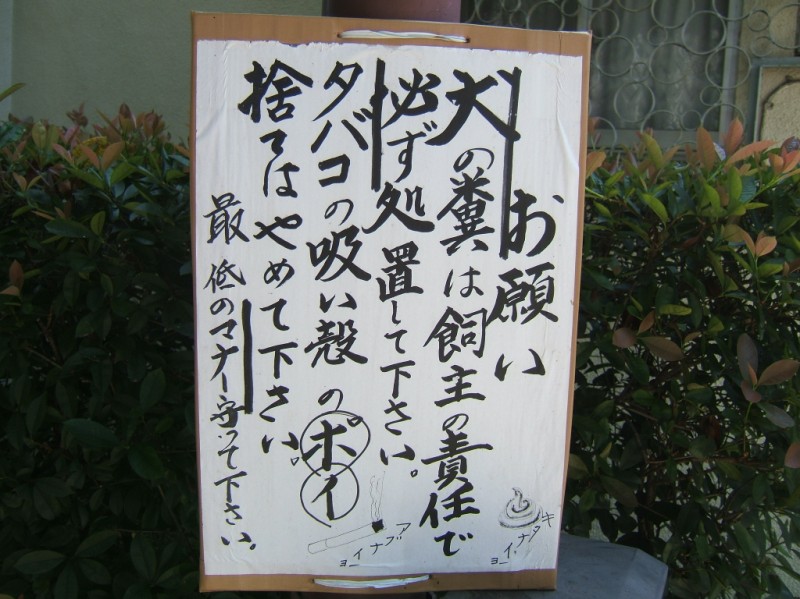 お願い
犬の糞は飼主の責任で
必ず処置して下さい。
タバコの吸い殻のポイ
捨てはやめて下さい。
最低のマナー守って下さい。
キタナイヨー
アブナイヨー